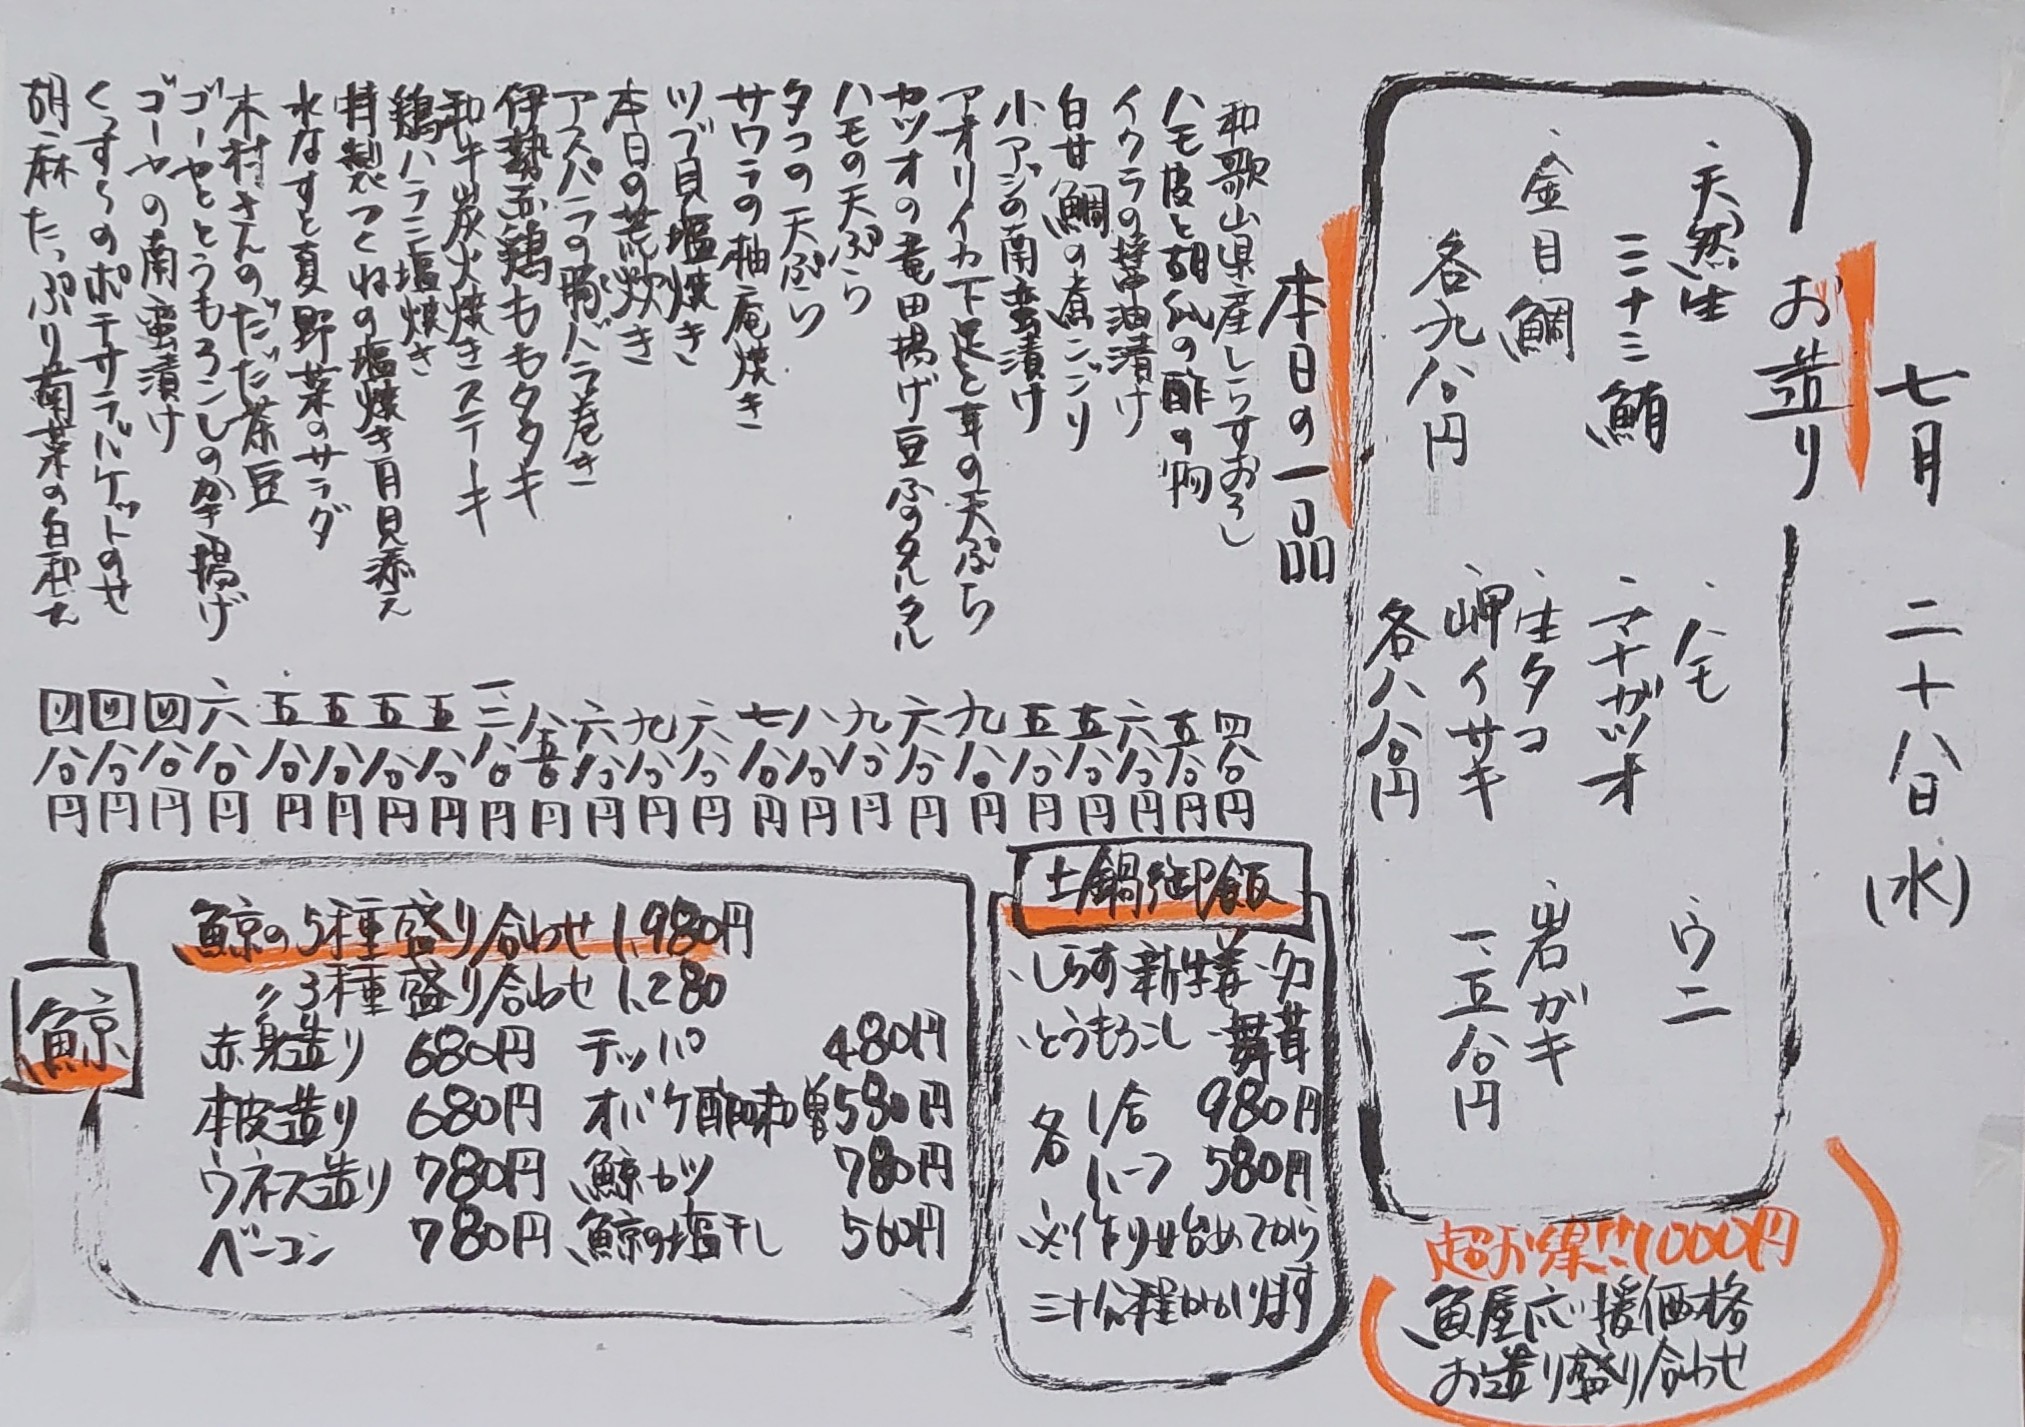 七月二十八日(水)
お造り
・天然生
三三十三鮪
・金目鯛
各九八〇円
・ハモ
・マナガツオ
・生タコ
・岬イサキ
各八八〇円
・ウニ
・岩ガキ
一、五八〇円
超お得!!!1000円
魚屋応援価格
お造り盛り合わせ
本日の一品
和歌山県産しらすおろし 四八〇円
ハモ皮と胡瓜の酢の物 五八〇円
イクラの醤油漬け 六八〇円
白甘鯛の煮こごり 五八〇円
小アジの南蛮漬け 五八〇円
アオリイカ下足と耳の天ぷら 九八〇円
カツオの竜田揚げ豆ふのタルタル 六八〇円
ハモの天ぷら 九八〇円
タコの天ぷら 八八〇円
サワラの柚庵焼き 七八〇円
ツブ貝塩焼き 六八〇円
本日の荒炊き 九八〇円
アスパラの豚バラ巻き 六八〇円
伊勢赤鶏ももタタキ
和牛炭火焼きステーキ 一二八〇円
鶏ハラミ塩焼き 五八〇円
特製つくねの塩焼き月見添え 五八〇円
水なすと夏野菜のサラダ 五八〇円
木村さんのだだ茶豆 五八〇円
ゴーヤととうもろこしのかき揚げ 六八〇円
ゴーヤの南蛮漬け 四八〇円
くっすーのポテサラバケットのせ 四八〇円
胡麻たっぷり菊菜の白和え 四八〇円
土鍋御飯
・しらす新生姜・タコ
・とうもろこし・舞茸
各 1合 980円
ハーフ 580円
※作り始めてから
三十分程かかります
鯨
鯨の5種盛り合わせ 1,980円
〃 3種盛り合わせ 1,280
赤身造り 680円 テッパ 480円
本皮造り 680円 オバケ酢味噌 580円
ウネス造り 780円 鯨カツ 780円
ベーコン 780円 鯨の塩干し 560円